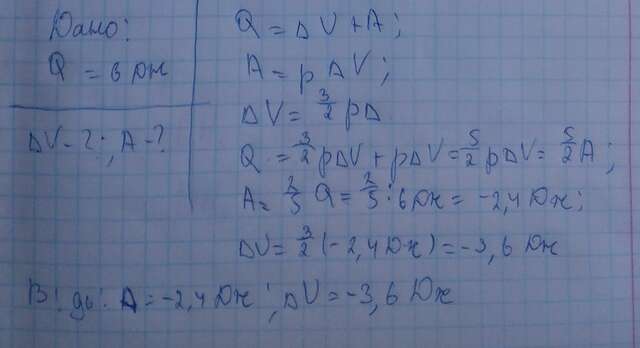 Дано:
Q = 6 Дж
ΔV - ?; A - ?
Q = ΔV + A;
A = pΔV;
ΔV = 3/2 pΔ
Q = 3/2 pΔV + pΔV = 5/2 pΔV = 5/2 A;
A = 2/5 Q = 2/5 · 6 Дж = -2,4 Дж;
ΔV = 3/2 (-2,4 Дж) = -3,6 Дж
В!дь: A = -2,4 Дж; ΔV = -3,6 Дж